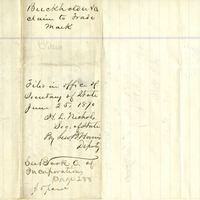 Buckholder &
claim to Trade
Mark
Filed in office of
Secretary of State
June 25, 1870
H. L. Nichols
Sec. of State
By
Deputy
See Book C. of
Incorporations
Page 288